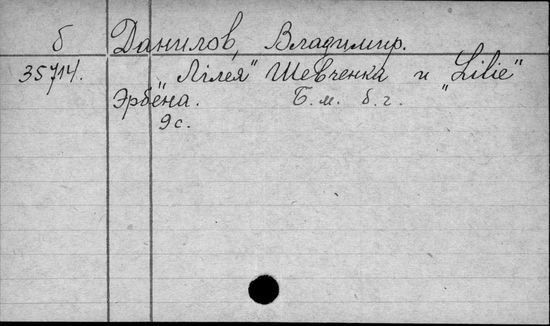 б Данилов, Владимир.
35714. „Лілея" Шевченка и „Lilie"
Эрбена. Б.м. б.г.
9с.